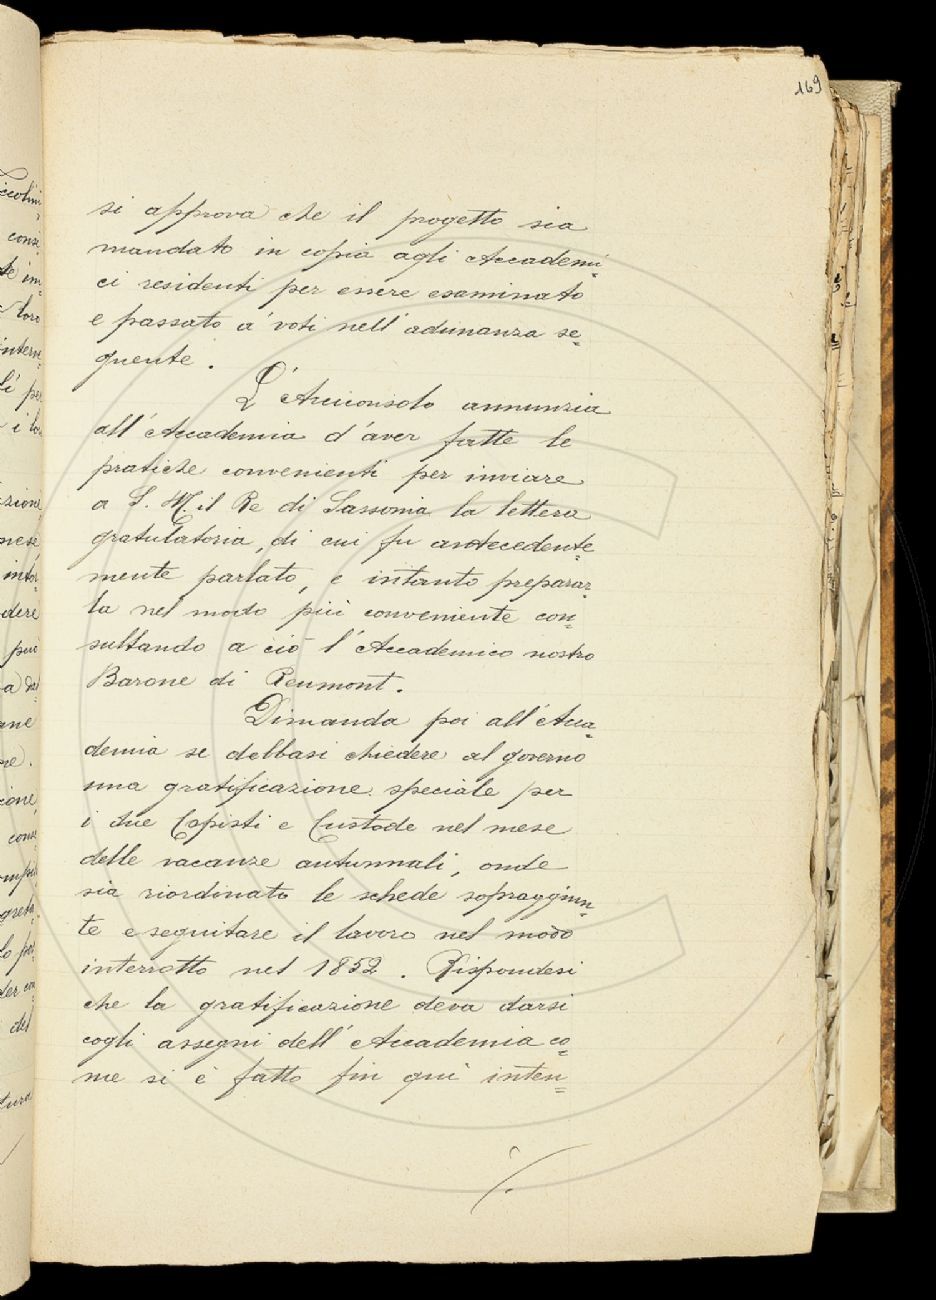 169
si approva che il progetto sia
mandato in copia agli Accademi=
ci residenti per essere esaminato
e passato a' voti nell'adunanza se=
guente.
L'Arciconsolo annunzia
all'Accademia d'aver fatte le
pratiche convenienti per inviare
a S. M. il Re di Sassonia la lettera
gratulatoria, di cui fu antecedente=
mente parlato, e intanto preparar=
la nel modo più conveniente con=
sultando a ciò l'Accademico nostro
Barone di Reumont.
Dimanda poi all'Acca=
demia se debbasi chiedere al governo
una gratificazione speciale per
i due Copisti e Custode nel mese
delle vacanze autunnali, onde
sia riordinato le schede sopraggiun=
te e seguitare il lavoro nel modo
interrotto nel 1852. Rispondesi
che la gratificazione deva darsi
cogli assegni dell'Accademia co=
me si è fatto fin qui inten=
./.